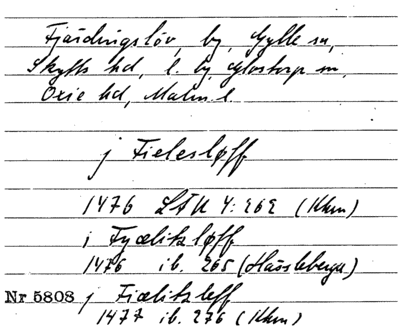 Fjärdingslöv, by, Gylle sn,
Skytts hd, l. by, Glostorp sn,
Oxie hd, Malm. l.
j Fielesløff
1476 LÅU 4: 262 (Khvn)
i Fyælitzløff
1476 ib. 265 (Hassleberga)
Nr 5808 j Fiælitzleff
1477 ib. 276 (Khvn)